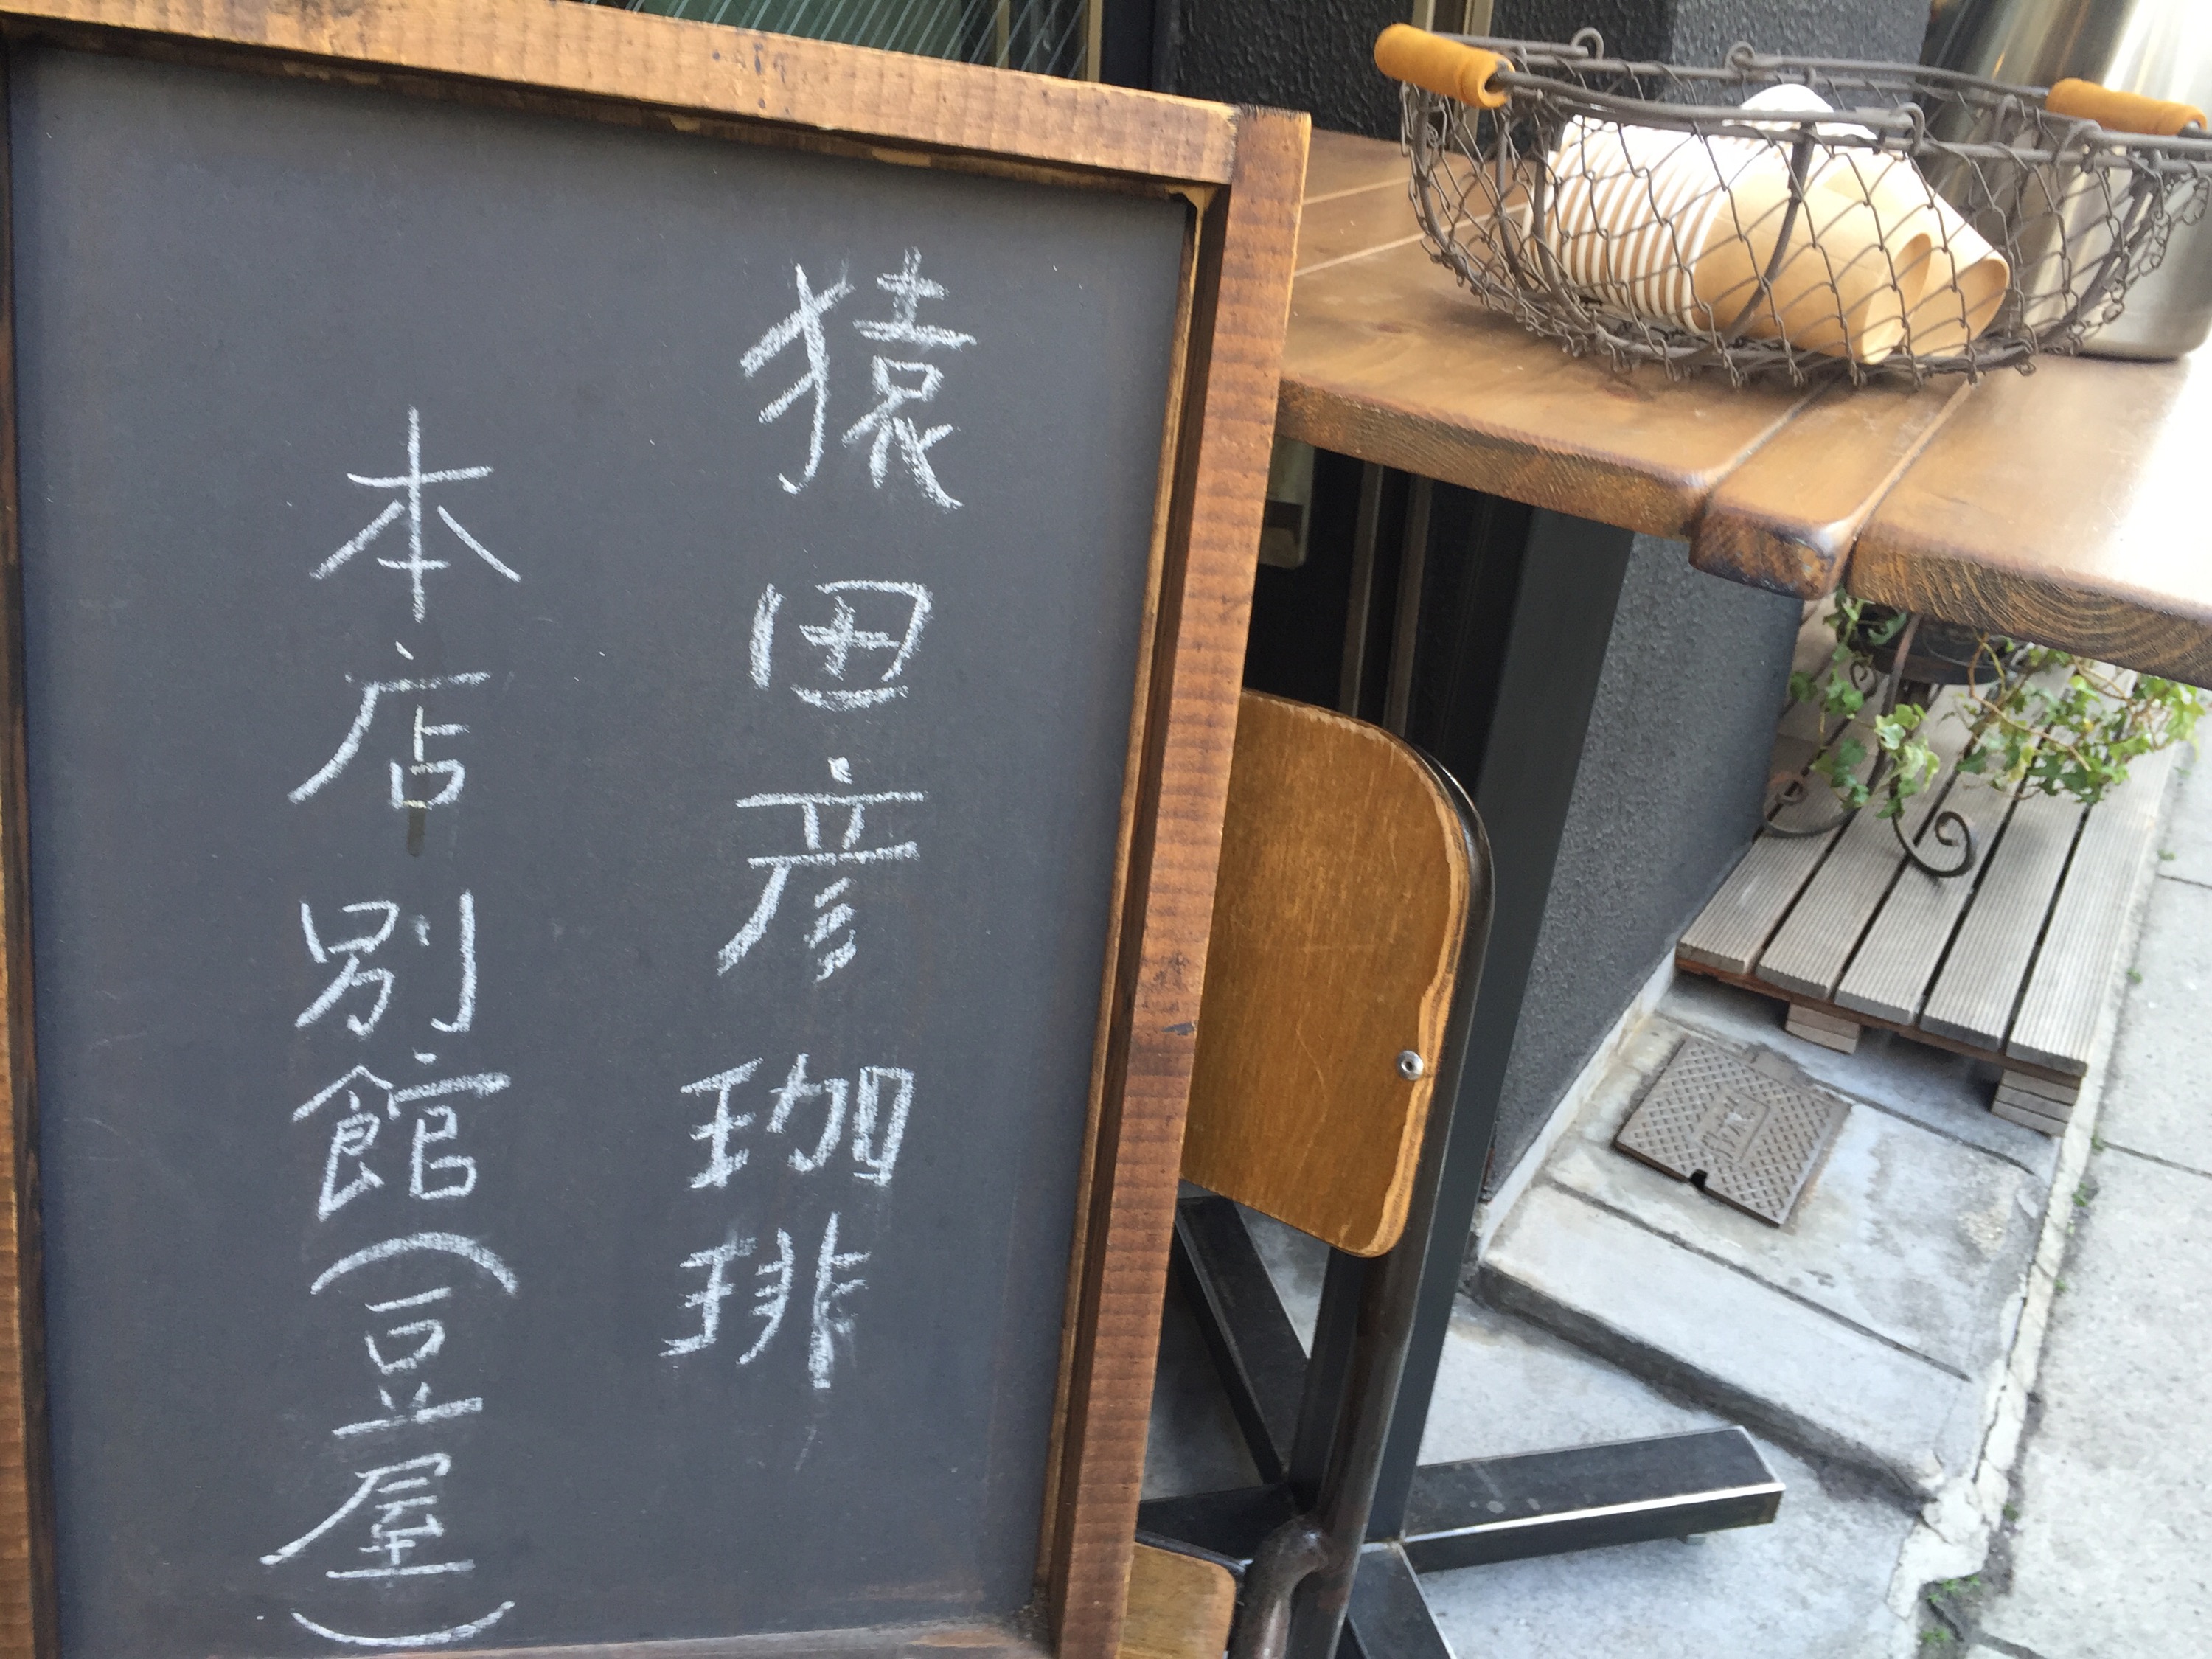 猿田彦珈琲
本店別館(豆屋)